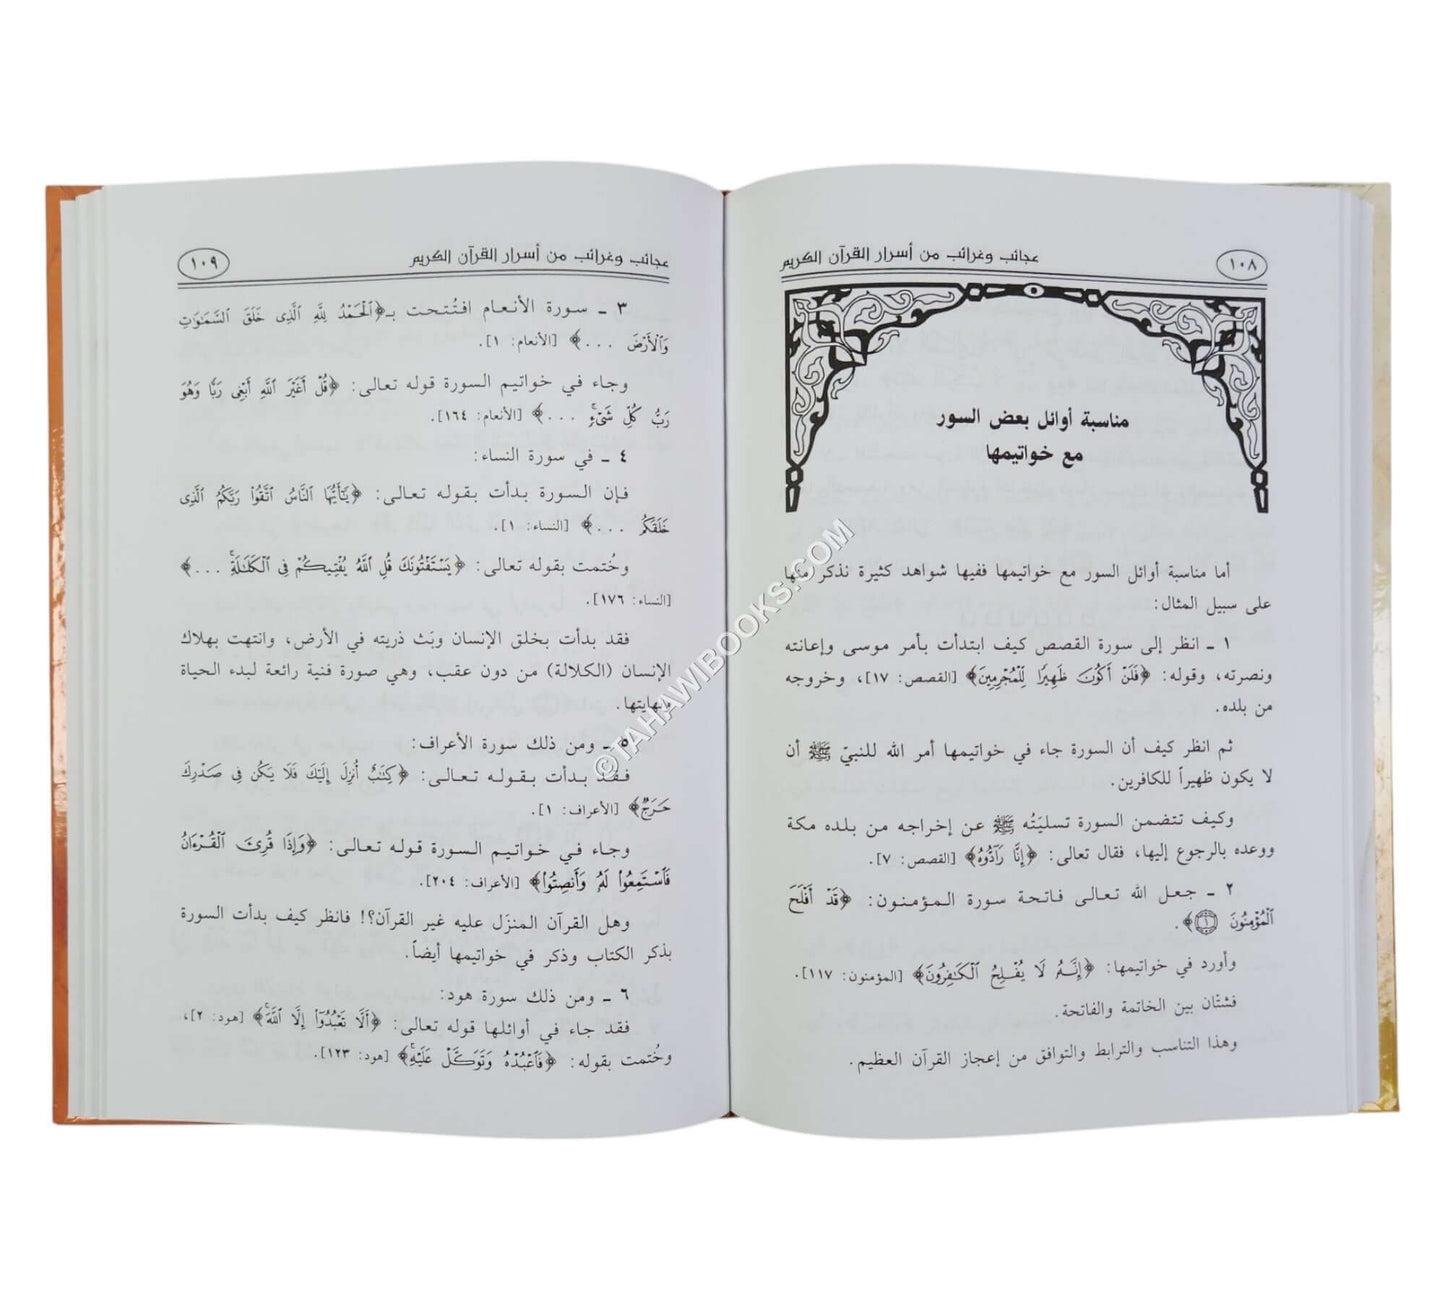 عجائب وغرائب من أسرار القرآن الكريم
١٠٨
مناسبة أوائل بعض السور
مع خواتيمها
أما مناسبة أوائل السور مع خواتيمها ففيها شواهد كثيرة نذكر منها
على سبيل المثال:
١ ـ انظر إلى سورة القصص كيف ابتدأت بأمر موسى وإعانته
ونصرته، وقوله: ﴿فَلَنْ أَكُونَ ظَهِيرًا لِّلْمُجْرِمِينَ﴾ [القصص: ١٧]، وخروجه
من بلده.
ثم انظر كيف أن السورة جاء في خواتيمها أمر الله للنبيّ ﷺ أن
لا يكون ظهيراً للكافرين.
وكيف تتضمن السورة تسليَتُه ﷺ عن إخراجه من بلده مكة
ووعده بالرجوع إليها، فقال تعالى: ﴿إِنَّا رَآدُّوهُ﴾ [القصص: ٧].
٢ ـ جعل الله تعالى فاتحة سورة المؤمنون: ﴿قَدْ أَفْلَحَ
ٱلْمُؤْمِنُونَ ١﴾.
وأورد في خواتيمها: ﴿إِنَّهُۥ لَا يُفْلِحُ ٱلْكَٰفِرُونَ﴾ [المؤمنون: ١١٧].
فشتّان بين الخاتمة والفاتحة.
وهذا التناسب والترابط والتوافق من إعجاز القرآن العظيم.
عجائب وغرائب من أسرار القرآن الكريم
١٠٩
٣ ـ سورة الأنعام افتُتحت بـ﴿ٱلْحَمْدُ لِلَّهِ ٱلَّذِى خَلَقَ ٱلسَّمَٰوَٰتِ
وَٱلْأَرْضَ ...﴾ [الأنعام: ١].
وجاء في خواتيم السورة قوله تعالى: ﴿قُلْ أَغَيْرَ ٱللَّهِ أَبْغِى رَبًّا وَهُوَ
رَبُّ كُلِّ شَىْءٍ ...﴾ [الأنعام: ١٦٤].
٤ ـ في سورة النساء:
فإن السورة بدأت بقوله تعالى: ﴿يَٰٓأَيُّهَا ٱلنَّاسُ ٱتَّقُوا۟ رَبَّكُمُ ٱلَّذِى
خَلَقَكُم ...﴾ [النساء: ١].
وخُتمت بقوله تعالى: ﴿يَسْتَفْتُونَكَ قُلِ ٱللَّهُ يُفْتِيكُمْ فِى ٱلْكَلَٰلَةِ ...﴾
[النساء: ١٧٦].
فقد بدأت بخلق الإنسان وبَث ذريته في الأرض، وانتهت بهلاك
الإنسان (الكلالة) من دون عقب، وهي صورة فنية رائعة لبدء الحياة
ونهايتها.
٥ ـ ومن ذلك سورة الأعراف:
فقد بدأت بقوله تعالى: ﴿كِتَٰبٌ أُنزِلَ إِلَيْكَ فَلَا يَكُن فِى صَدْرِكَ
حَرَجٌ﴾ [الأعراف: ١].
وجاء في خواتيم السورة قوله تعالى: ﴿وَإِذَا قُرِئَ ٱلْقُرْءَانُ
فَٱسْتَمِعُوا۟ لَهُۥ وَأَنصِتُوا۟﴾ [الأعراف: ٢٠٤].
وهل القرآن المنزَل عليه غير القرآن؟! فانظر كيف بدأت السورة
بذكر الكتاب وذكر في خواتيمها أيضاً.
٦ ـ ومن ذلك سورة هود:
فقد جاء في أوائلها قوله تعالى: ﴿أَلَّا تَعْبُدُوٓا۟ إِلَّا ٱللَّهَ﴾ [هود: ٢]،
وخُتمت بقوله: ﴿فَٱعْبُدْهُ وَتَوَكَّلْ عَلَيْهِ﴾ [هود: ١٢٣].
©TAHAWIBOOKS.COM